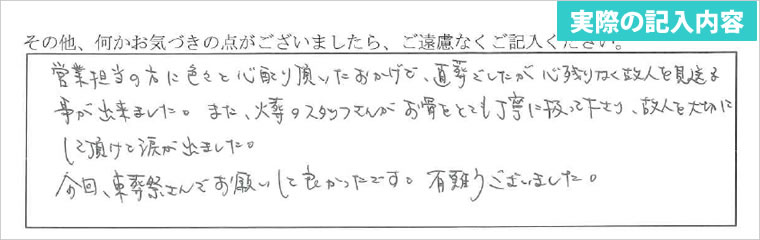 実際の記入内容
その他、何かお気づきの点がございましたら、ご遠慮なくご記入ください。
営業担当の方に色々と心配り頂いたおかげで、直葬でしたが心残りなく故人を見送る
事が出来ました。また、火葬のスタッフさんがお骨をとても丁寧に扱って下さり、故人を大切に
して頂けて涙が出ました。
今回、東葬祭さんでお願いして良かったです。有難うございました。